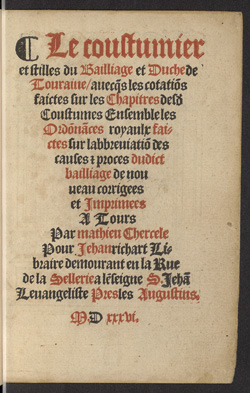 Le coustumier
et stilles du Bailliage et Duche de
Touraine / auecq̃s les cotatiõs
faictes sur les Chapitres desd̛
Coustumes Ensemble les
Ordõnãces royaulx fai-
ctes sur labbreuiatiõ des
causes ⁊ proces dudict
bailliage de nou
ueau corrigees
et Imprimees
A Tours
Par mathien Chercele
Pour Jehan richart Li-
braire demourant en la Rue
de la Sellerie a lẽseigne S. Jehã
Leuangeliste Pres les Augustins.
M.D xxxvi.